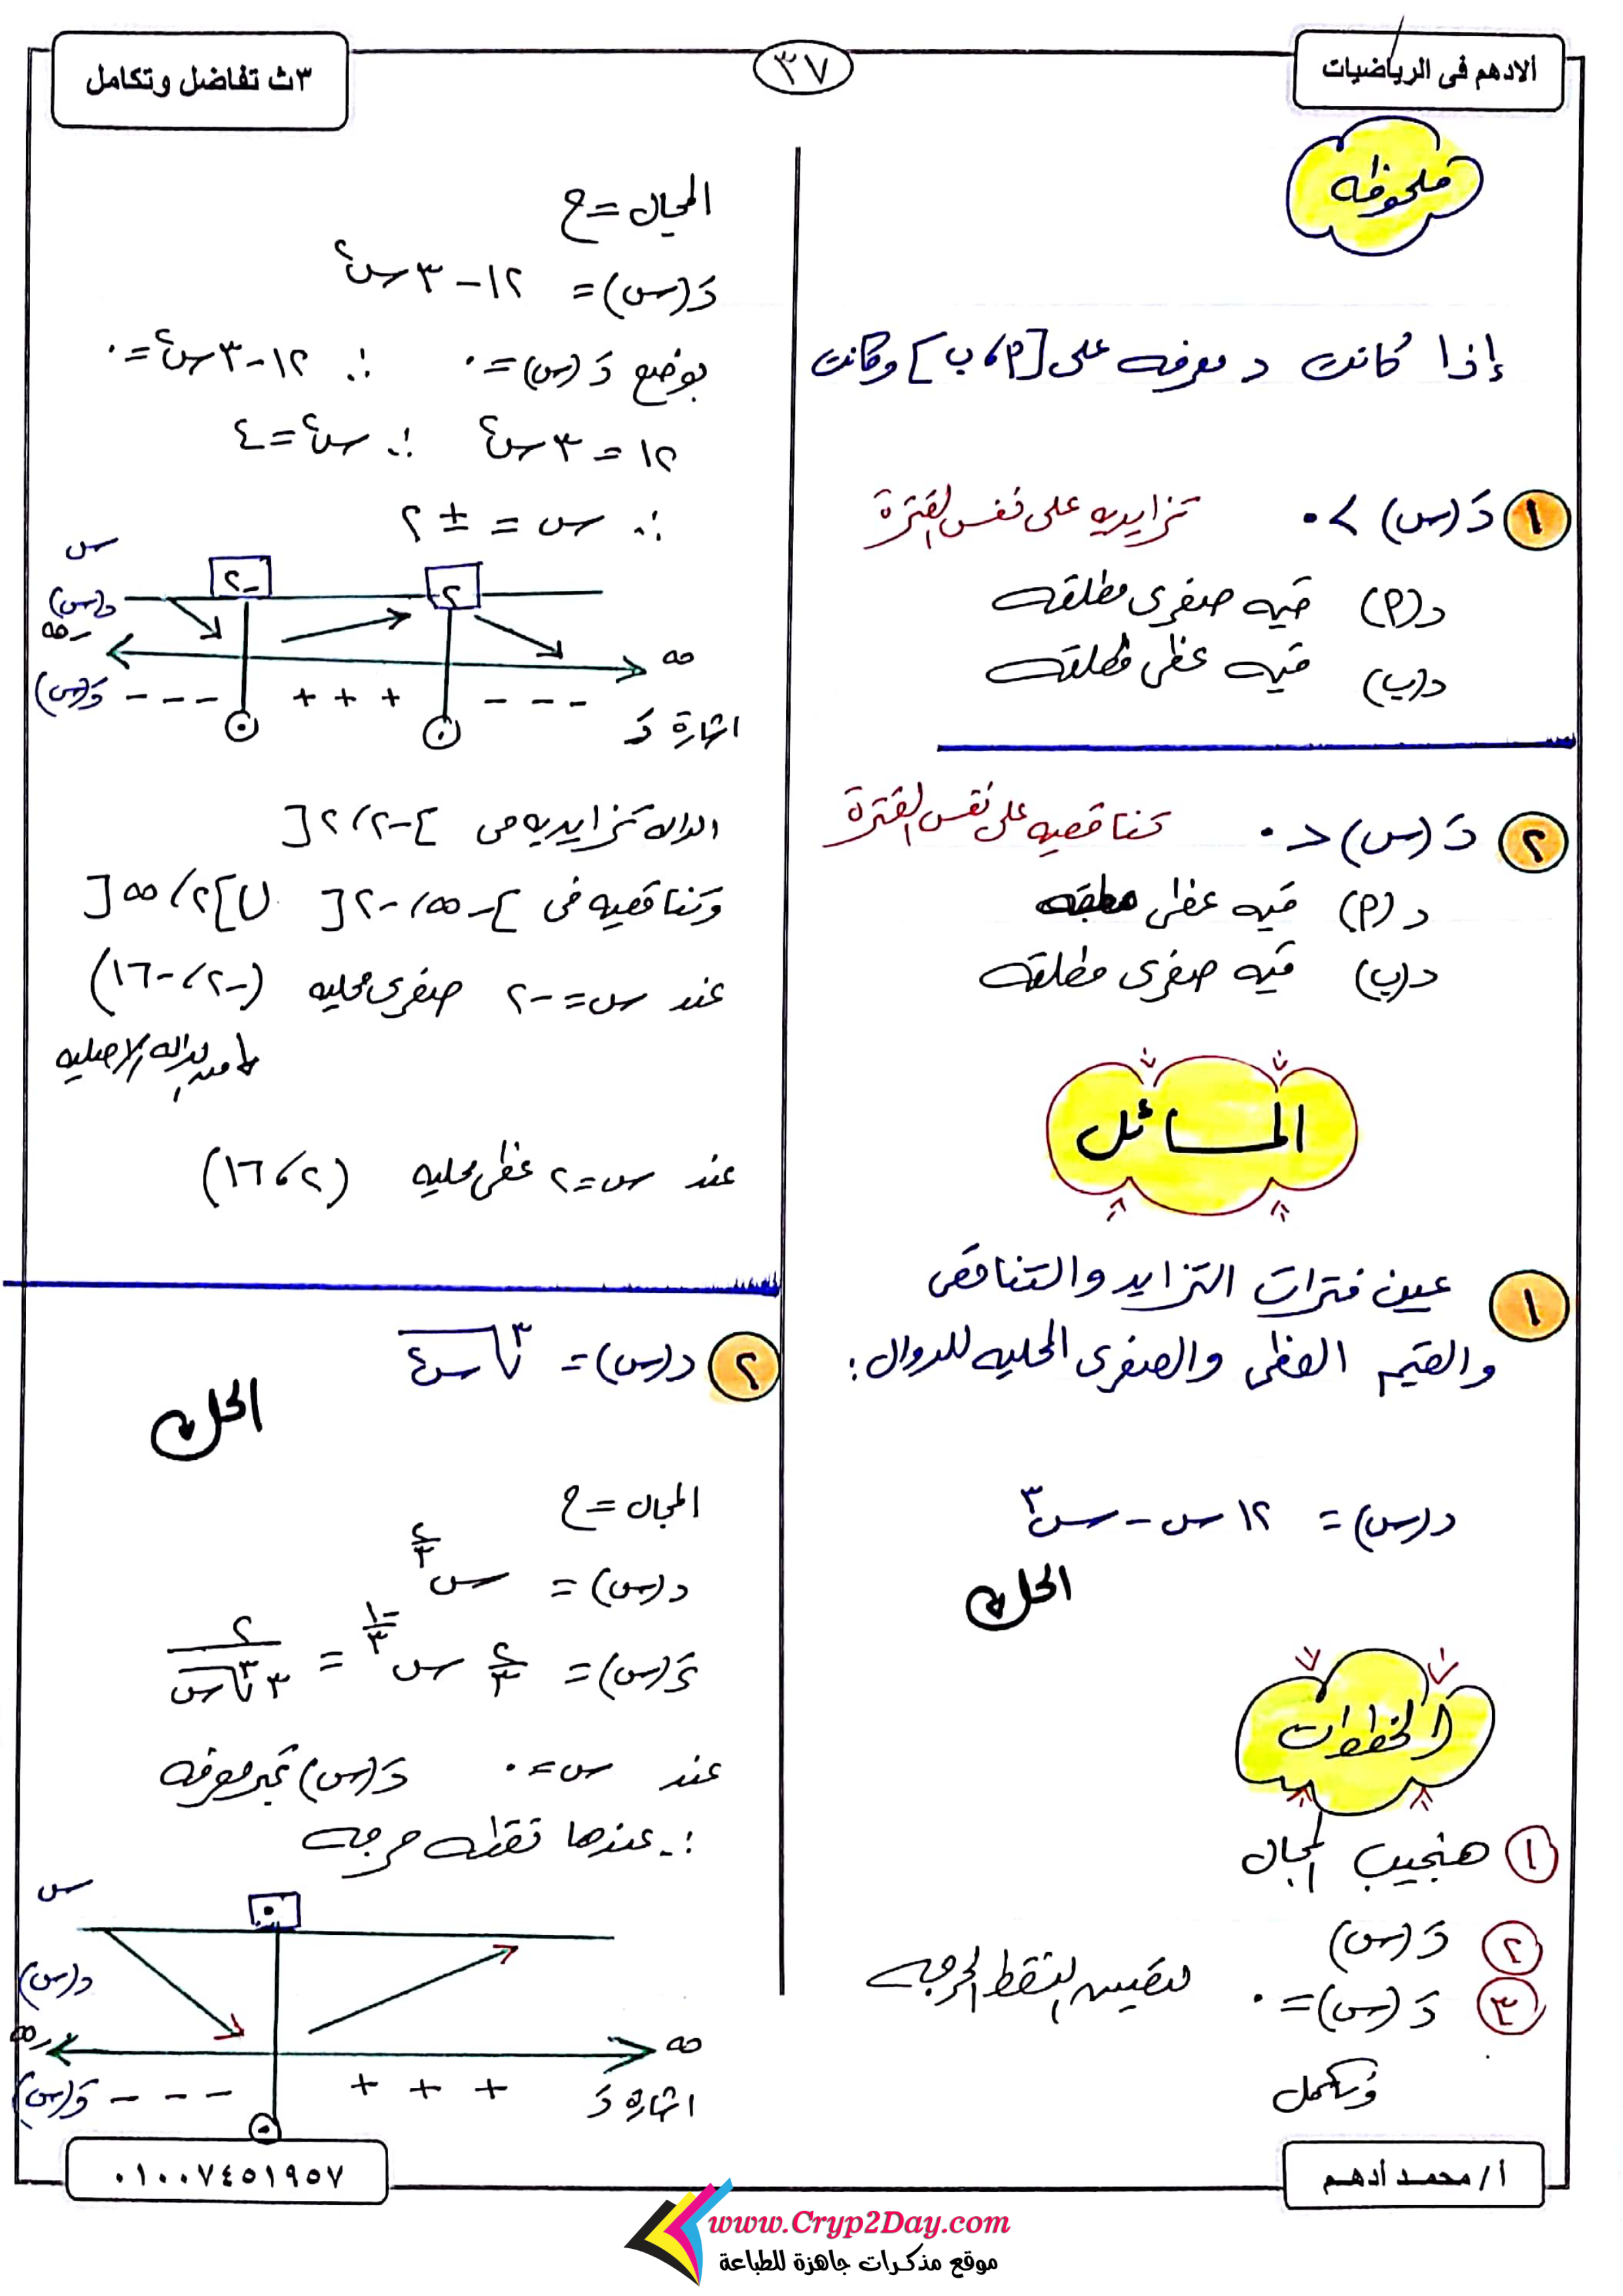 الادهم فى الرياضيات
٣٧
٣ث تفاضل وتكامل
ملحوظه
إذا كانت د معرفه على [أ، ب] وكانت
١ دَ(س) > ٠ تزايديه على نفس الفترة
د(أ) قيمه صغرى مطلقه
د(ب) قيمه عظمى مطلقه
٢ دَ(س) < ٠ تناقصيه على نفس الفترة
د(أ) قيمه عظمى مطلقه
د(ب) قيمه صغرى مطلقه
المسائل
١ عين فترات التزايد والتناقص
والقيم العظمى والصغرى المحليه للدوال:
د(س) = ١٢ س - س³
الحل
الخطوات
١ هنجيب المجال
٢ دَ(س)
٣ دَ(س) = ٠ لتعيين النقط الحرجه
ونكمل
المجال = ح
دَ(س) = ١٢ - ٣ س²
بوضع دَ(س) = ٠ ∴ ١٢ - ٣ س² = ٠
١٢ = ٣ س² ∴ س² = ٤
∴ س = ± ٢
س
-٢ ٢
د(س)
-∞ ∞
دَ(س) - - - + + + - - -
٠ ٠
اشارة دَ
الداله تزايديه فى ]-٢، ٢[
وتناقصيه فى ]-∞، -٢[ ∪ ]٢، ∞[
عند س = -٢ صغرى محليه (-٢، -١٦)
من الداله الاصليه
عند س = ٢ عظمى محليه (٢، ١٦)
٢ د(س) = ∛س²
الحل
المجال = ح
د(س) = س^(٢/٣)
دَ(س) = ٢/٣ س^(-١/٣) = ٢/(٣ ∛س)
عند س = ٠ دَ(س) غير معرفه
∴ عندها نقطه حرجه
س
٠
د(س)
-∞ ∞
دَ(س) - - - + + +
اشارة دَ
أ/ محمد أدهم
٠١٠٠٧٤٥١٩٥٧
www.Cryp2Day.com
موقع مذكرات جاهزة للطباعة